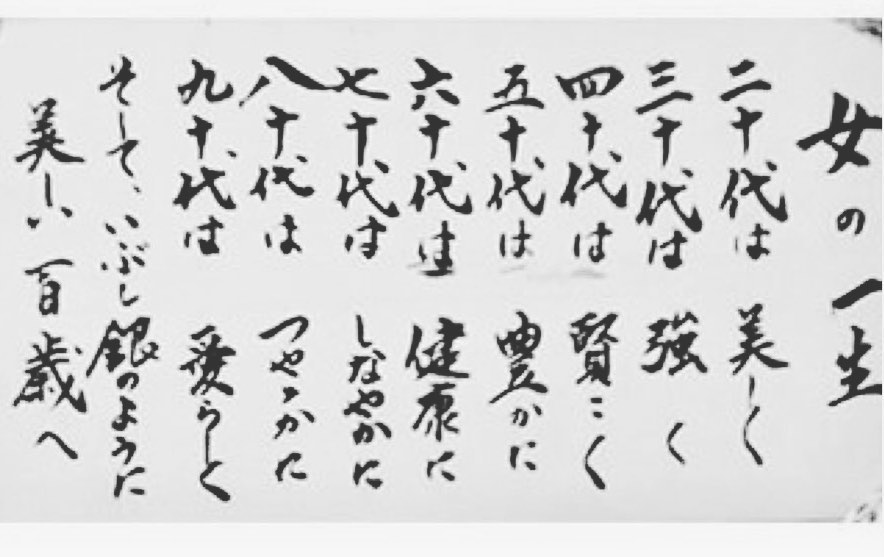 女の一生
二十代は 美しく
三十代は 強く
四十代は 賢こく
五十代は 豊かに
六十代は 健康に
七十代は しなやかに
八十代は つやゝかに
九十代は 愛らしく
そして、いぶし銀のように
美しい百歳へ